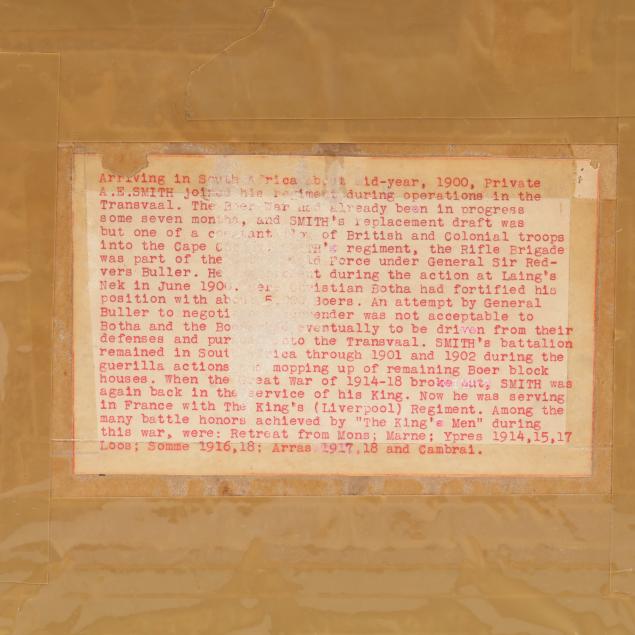 Arriving in South Africa about mid-year, 1900, Private
A.E.SMITH joined his regiment during operations in the
Transvaal. The Boer War had already been in progress
some seven months, and SMITH's replacement draft was
but one of a constant flow of British and Colonial troops
into the Cape regiment, the Rifle Brigade
was part of the Force under General Sir Red-
vers Buller. He during the action at Laing's
Nek in June 1900. Christian Botha had fortified his
position with about Boers. An attempt by General
Buller to was not acceptable to
Botha and the eventually to be driven from their
defenses and into the Transvaal. SMITH's battalion
remained in South Africa through 1901 and 1902 during the
guerilla actions mopping up of remaining Boer block
houses. When the Great War of 1914-18 broke out, SMITH was
again back in the service of his King. Now he was serving
in France with The King's (Liverpool) Regiment. Among the
many battle honors achieved by "The King's Men" during
this war, were: Retreat from Mons; Marne; Ypres 1914,15,17
Loos; Somme 1916,18; Arras 1917,18 and Cambrai.